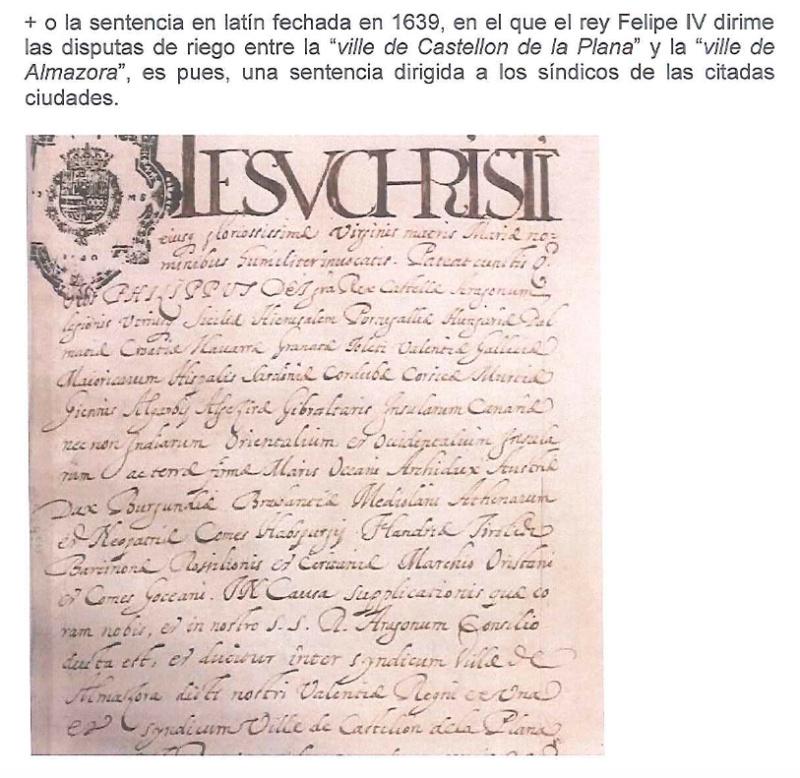 + o la sentencia en latín fechada en 1639, en el que el rey Felipe IV dirime
las disputas de riego entre la “ville de Castellon de la Plana” y la “ville de
Almazora”, es pues, una sentencia dirigida a los síndicos de las citadas
ciudades.
IESVCHRISTI
eiusq gloriosissimæ Virginis matris Mariæ no-
minibus humiliter invocatis. Pateat cunctis Q.
Nos PHILIPPUS DEI gra Rex Castellæ Aragonum
legionis Utriusq Siciliæ Hierusalem Portugalliæ Hungariæ Dal
matiæ Croatiæ Navarræ Granatæ Toleti Valentiæ Galleciæ
Maioricarum Hispalis Sardiniæ Cordubæ Corsicæ Murciæ
Giennis Algarbij Algesiræ Gibraltaris Insularum Canariæ
nec non Indiarum Orientalium et Occidentalium Insula
rum ac terræ firmæ Maris Oceani Archidux Austriæ
Dux Burgundiæ Brabantiæ Mediolani Athenarum
et Neopatriæ Comes Haospurgij Flandriæ Tirolis
Barcinonæ Rosilionis et Ceritaniæ Marchio Oristani
et Comes Goceani. IN Causa supplicationis quæ co
ram nobis, et in nostro S. S. R. Aragonum Consilio
ducta est, et ducitur inter syndicum Villæ de
Almassora dicti nostri Valentiæ Regni ex una
et syndicum Ville de Castellon de la Plana